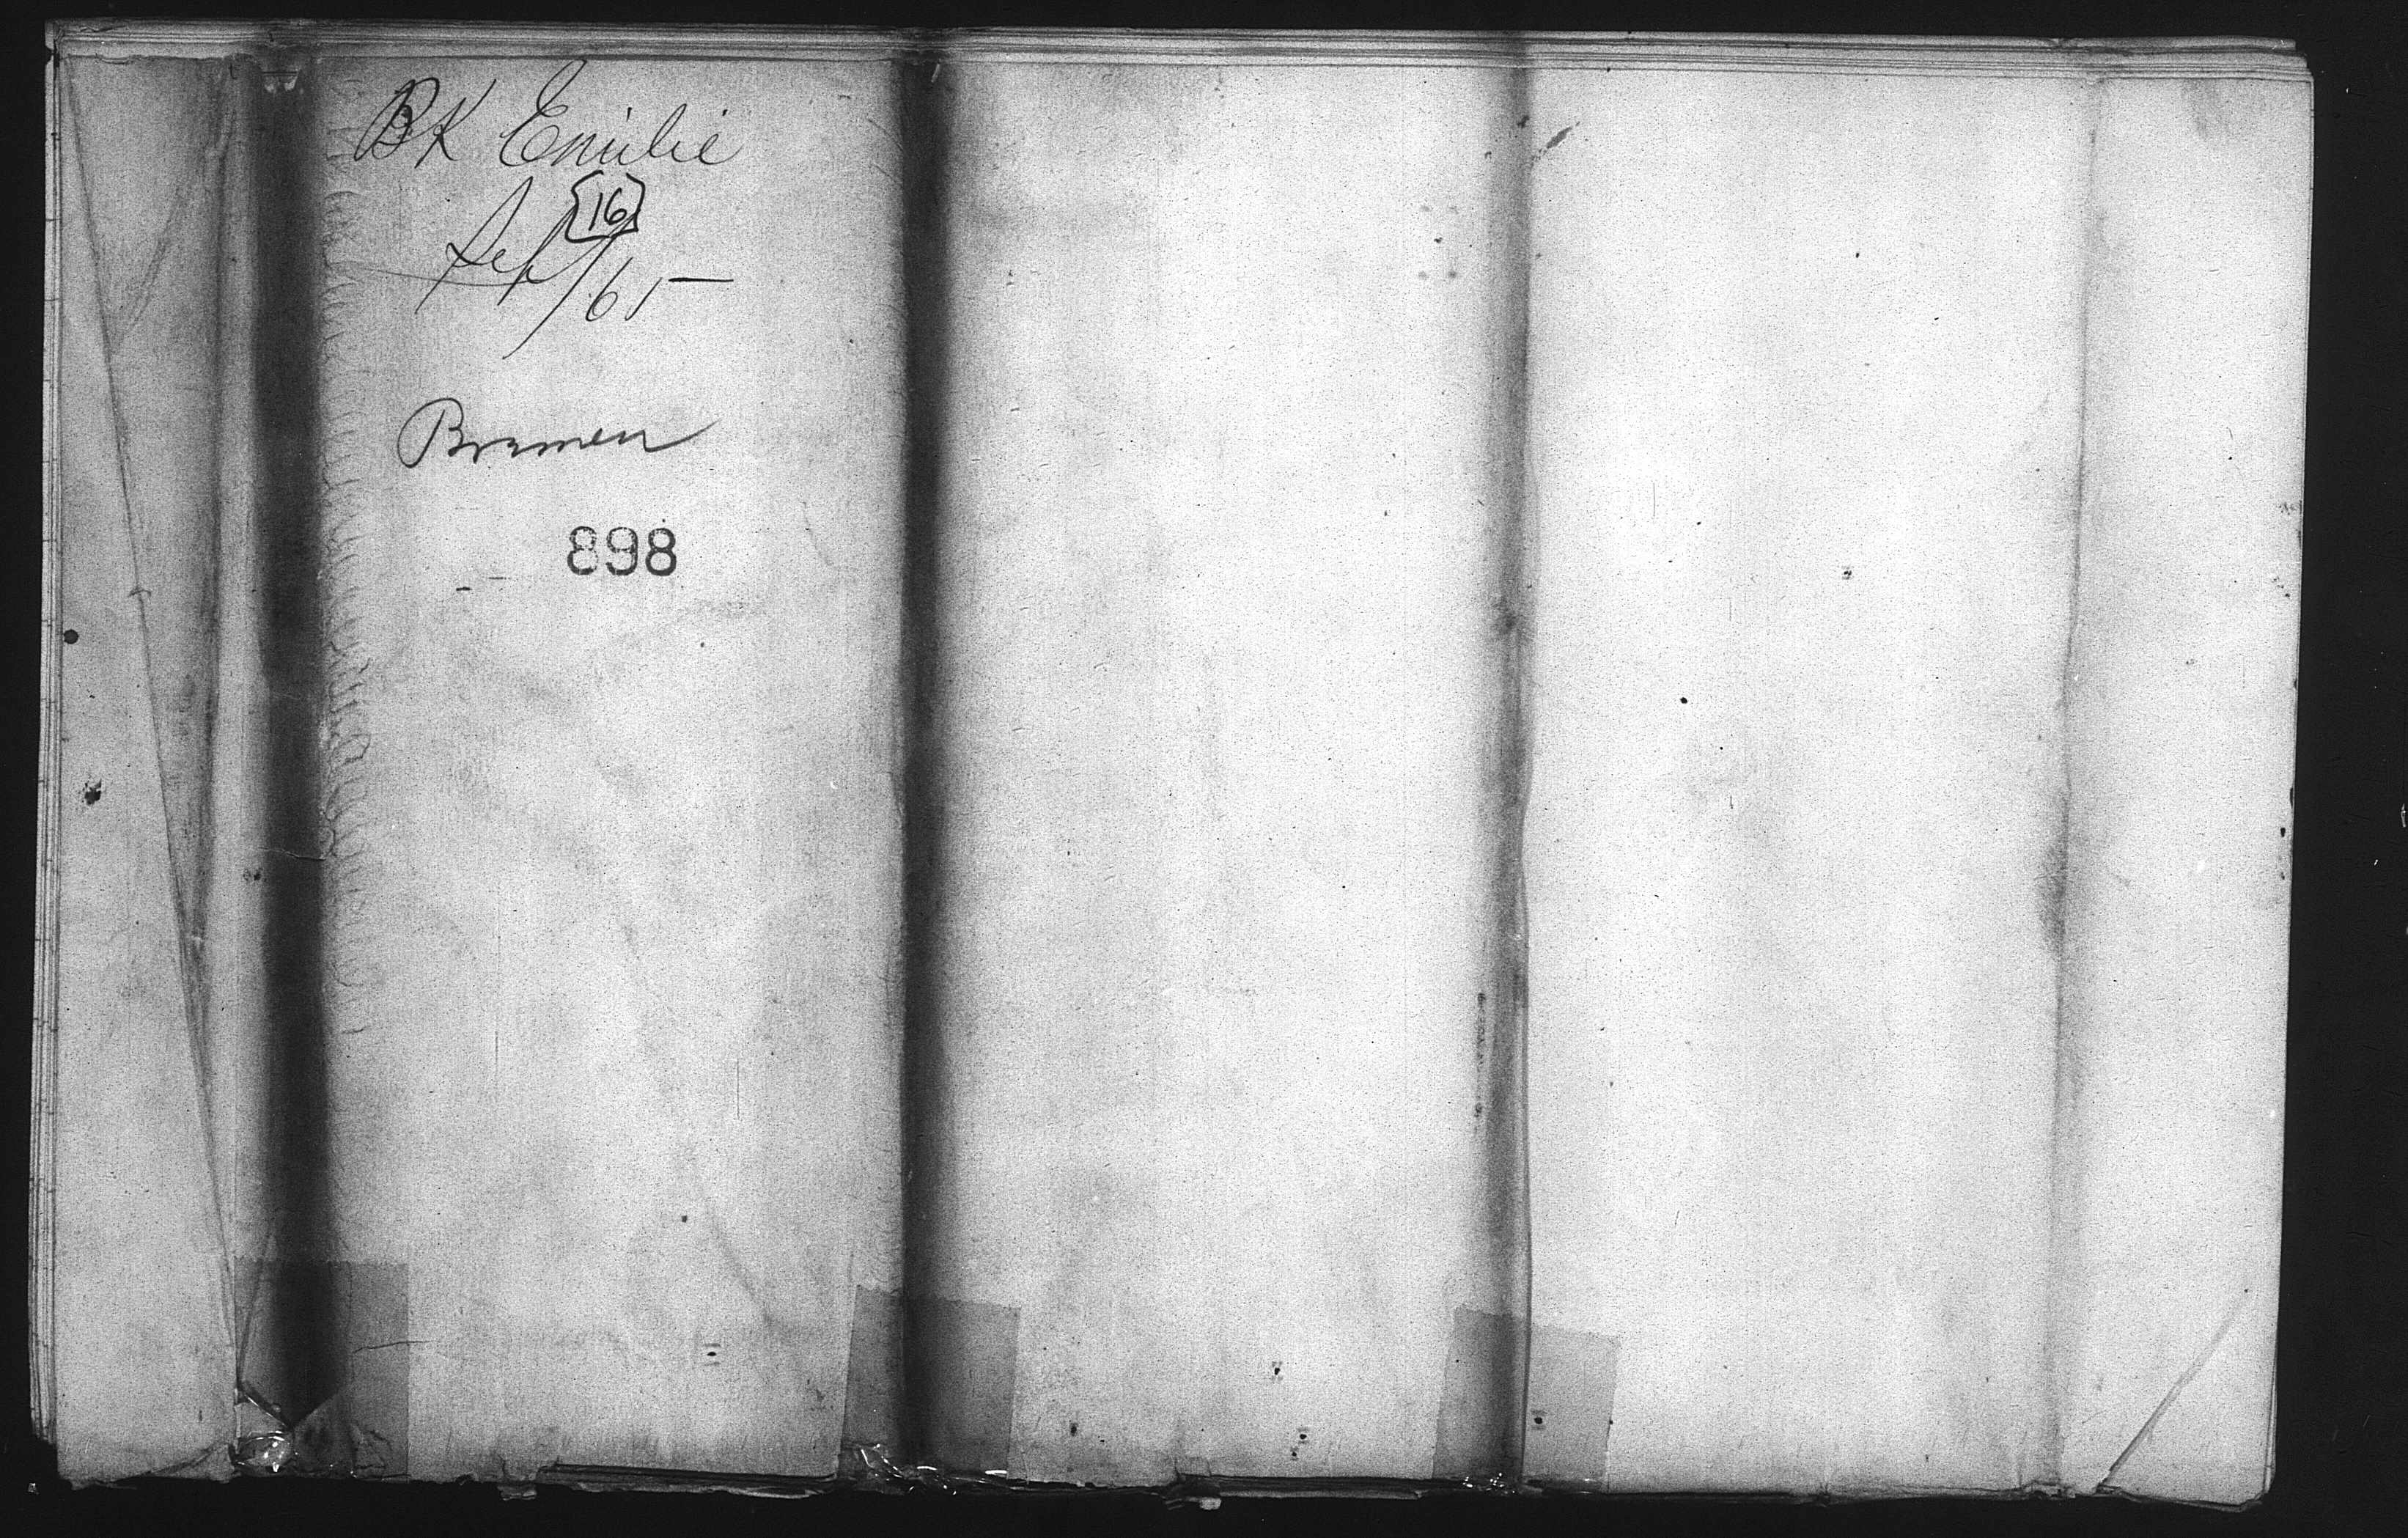 BK Emilie
[16]
Sep/65
Bremen
898